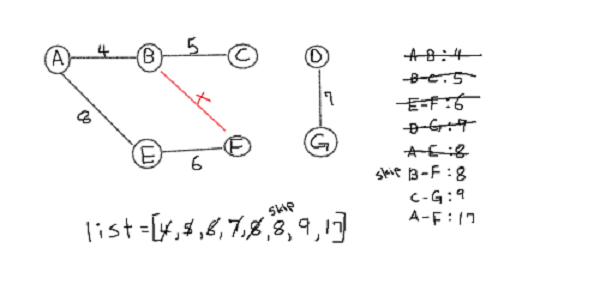 A
4
B
5
C
D
8
7
E
6
F
G
A B : 4
B-C : 5
E-F : 6
D-G : 7
A-E : 8
skip B-F : 8
C-G : 9
A-F : 17
skip
list=[4,5,6,7,8,8,9,17]